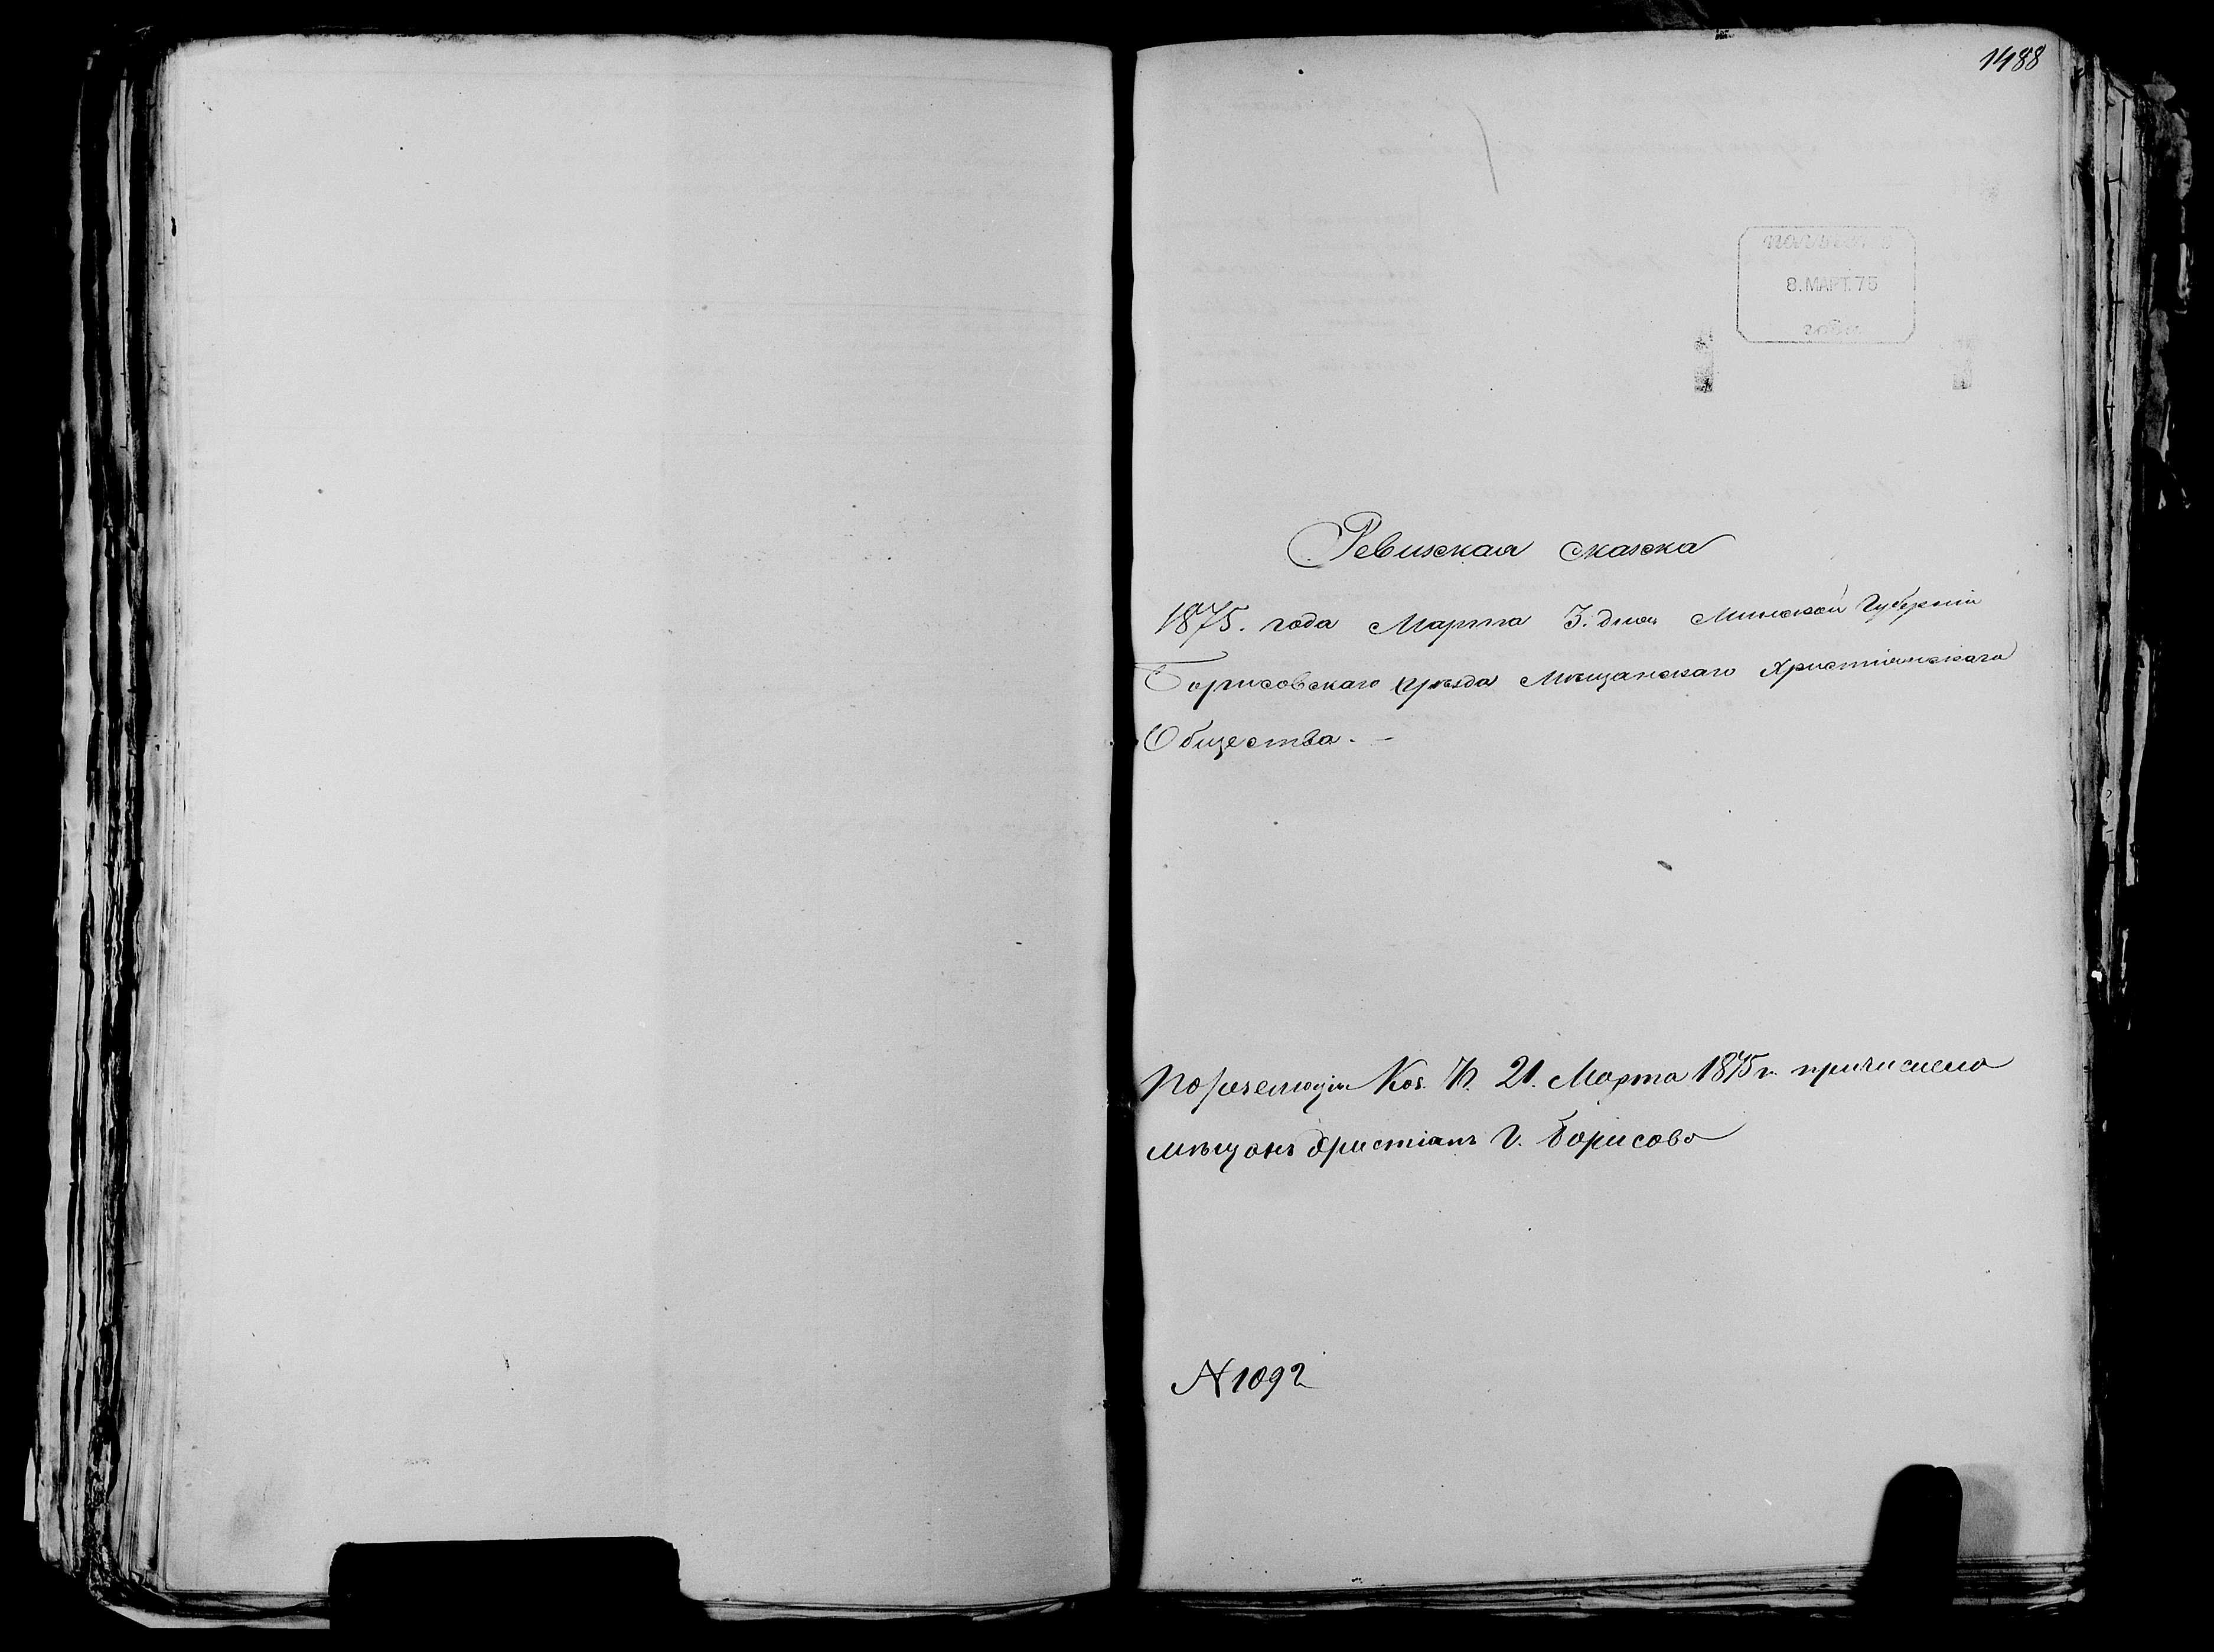 1488
получено
8. МАРТ. 75
года
Ревизская сказка
1875. года Марта 3. дня Минской Губерніи
Борисовскаго уѣзда Мѣщанскаго Христіянскаго
Общества. -
По резолюціи Каз. П. 21. Марта 1875 г. причислено
мѣщанъ христіанъ г. Борисова
№ 1092